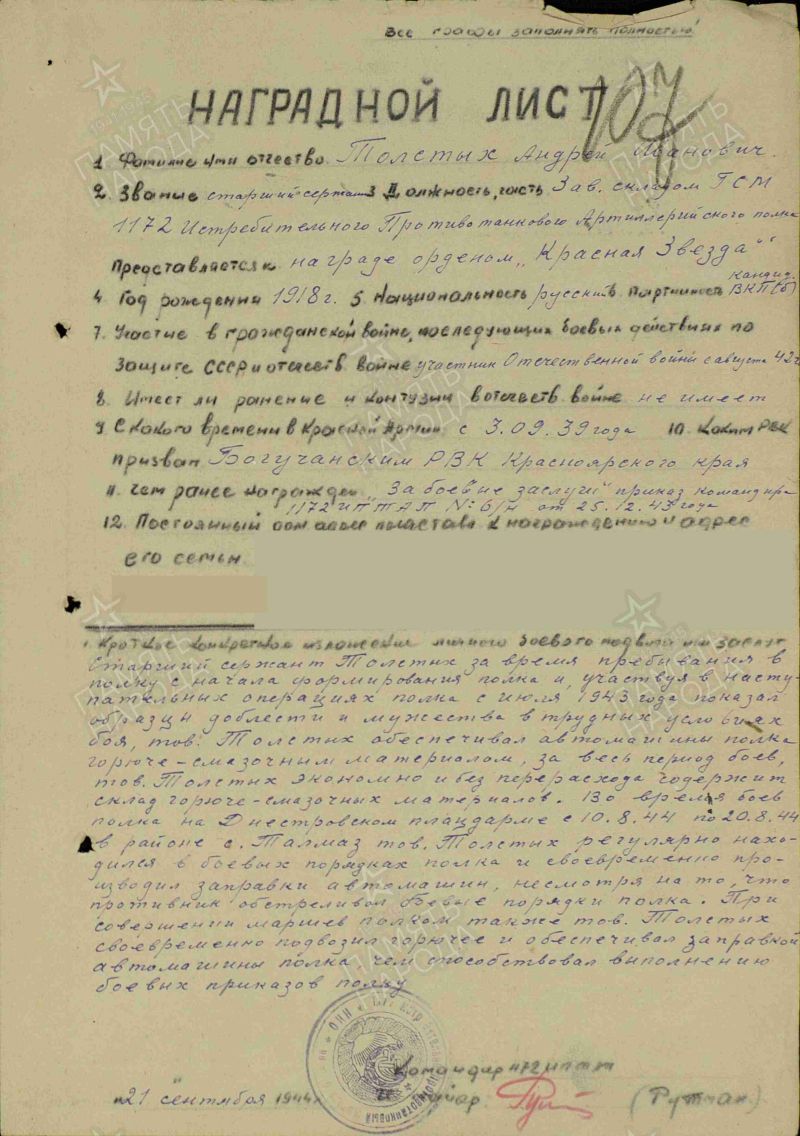 Все графы заполнять полностью!
НАГРАДНОЙ ЛИСТ 107
1. Фамилия имя отчество Толстых Андрей Иванович.
2. Звание старший сержант 3 Должность, часть Зав. складом ГСМ
1172 Истребительного Противотанкового Артиллерийского полка
Представляется к награде орденом „Красная Звезда“
кандид.
4. Год рождения 1918 г. 5 Национальность русский 6. Партийность ВКП(б)
7. Участие в гражданской войне, последующих боевых действиях по
защите СССР и отечеств войне участник Отечественной войны с августа 42 г
8. Имеет ли ранение и контузии в отечеств. войне не имеет
9. С какого времени в Красной Армии с 3.09.39 года 10. Каким РВК
призван Богучанским РВК Красноярского края
11. Чем ранее награжден „За боевые заслуги“ приказ командира
1172 ИПТАП № 6/н от 25.12.43 года
12. Постоянный дом адрес представл к награждению и адрес
его семьи
Краткое конкретное изложение личного боевого подвига или заслуг
Старший сержант Толстых за время пребивания в
полку с начала формирования полка и, участвуя в насту-
пательных операциях полка с июля 1943 года показал
образцы доблести и мужества в трудных условиях
боя, тов. Толстых обеспечивал автомашины полка
горюче-смазочным материалом, за весь период боев,
тов. Толстых экономно и без перерасхода содержит
склад горюче-смазочных материалов. Во время боев
полка на Днестровском плацдарме с 10.8.44 по 20.8.44
в районе с. Талмаз тов. Толстых регулярно нахо-
дился в боевых порядках полка и своевременно про-
изводил заправки автомашин, несмотря на то, что
противник обстреливал боевые порядки полка. При
совершении маршев полком также тов. Толстых
своевременно подвозил горючее и обеспечивал заправкой
автомашины полка, чем способствовал выполнению
боевых приказов полку
Командир 1172 иптап
„21“ сентября 1944 г. майор (Рутман)
ПАМЯТЬ НАРОДА